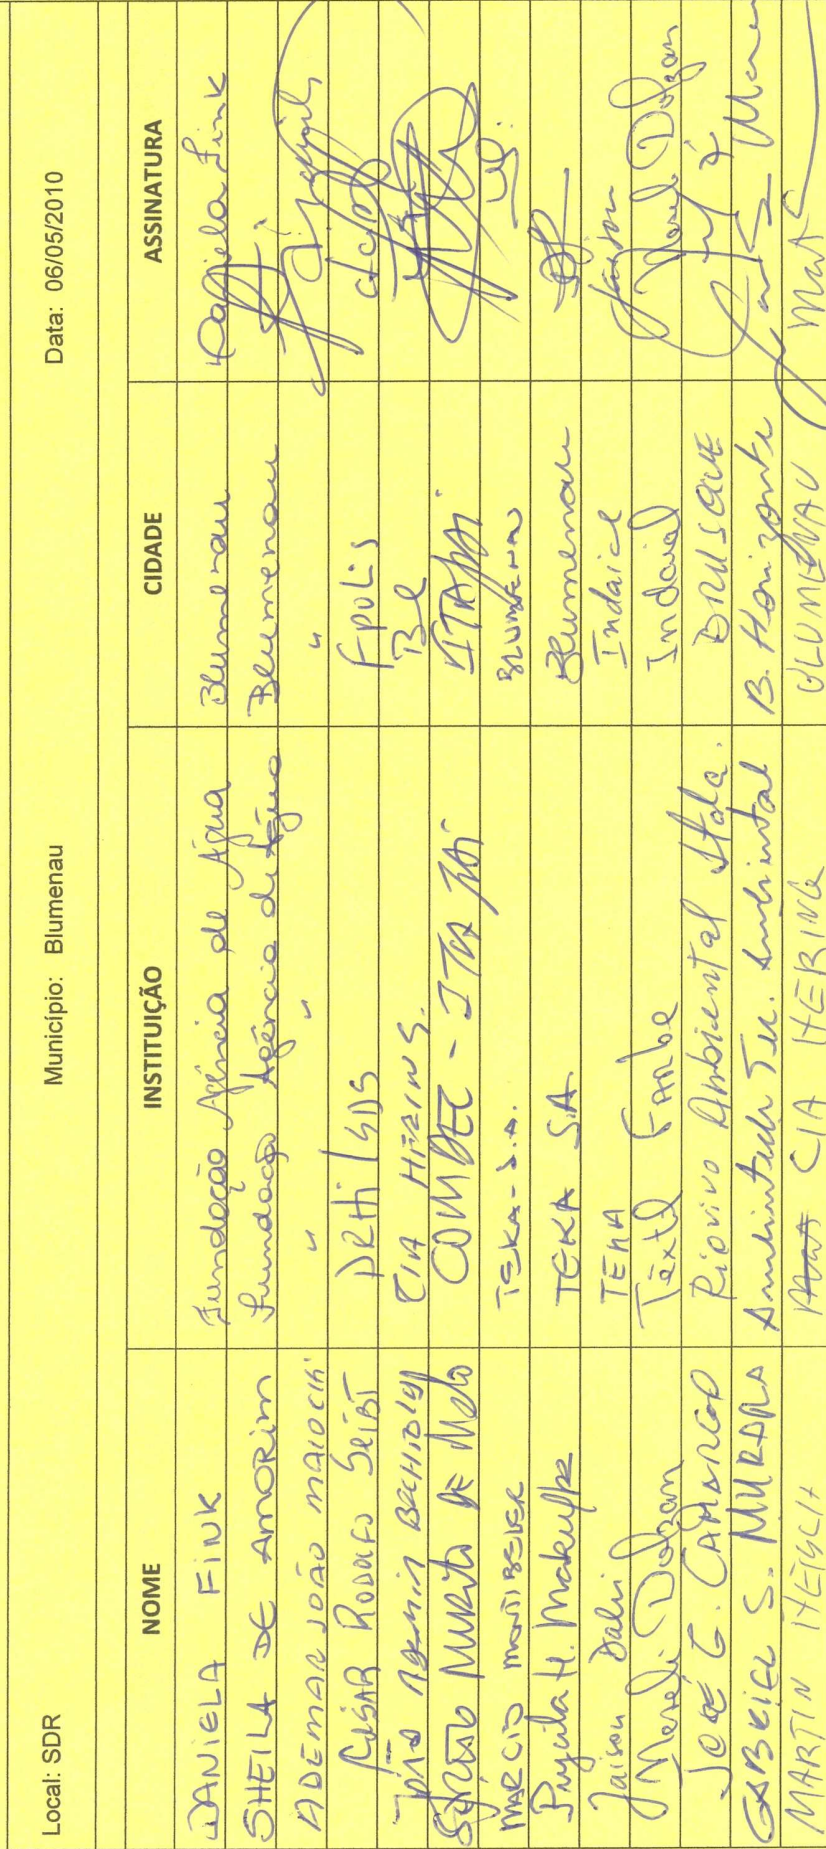 Local: SDR Município: Blumenau Data: 06/05/2010
NOME INSTITUIÇÃO CIDADE ASSINATURA
DANIELA FINK Fundação Agência de Água Blumenau Daniela Fink
SHEILA DE AMORIM Fundação Agência de Água Blumenau
ADEMAR JOÃO MAIOCHI " " "
CÉSAR RODOLFO SEIBT DRHI/SDS Fpolis
JOÃO CIA HERING. Bl
SÉRGIO MURILO DE Melo COMDEC - ITAJAÍ ITAJAÍ
MARCIO MONTIBELER TEKA-S.A. BLUMENAU
H. TEKA S.A. Blumenau
Jaison Dalri TEKA Indaial Jaison
Noreli Dolzan Têxtil Farbe Indaial Noreli Dolzan
JOSÉ G. CAMARGO Riovivo Ambiental Ltda. BRUSQUE
GABRIEL S. MURARA B. Horizonte
MARTIN CIA HERING BLUMENAU